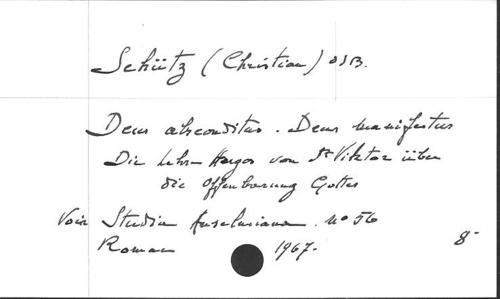 Schütz (Christian) OSB.
Deus absconditus. Deus manifestus
Die Lehre Hugos von St Viktor über
die Offenbarung Gottes
Voir Studia Anselmiana. no 56
Romae 1967. 8-